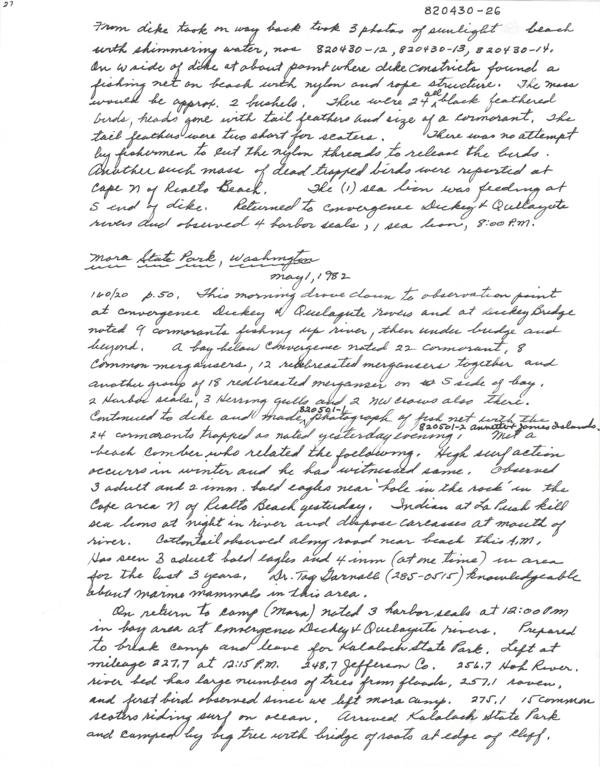 27
820430-26
From dike took on way back took 3 photos of sunlight beach
with shimmering water, nos 820430-12, 820430-13, 820430-14.
On W side of dike at about point where dike constricts found a
fishing net on beach with nylon and rope structure. The mass
would be approx. 2 bushels. There were 24 all black feathered
birds, heads gone with tail feathers and size of a cormorant. The
tail feathers were two short for scaters. There was no attempt
by fishermen to cut the nylon threads to release the birds.
Another such mass of dead trapped birds were reported at
Cape N of Rialto Beach. The (1) sea lion was feeding at
S end of dike. Returned to convergence Dickey & Quillayute
rivers and observed 4 harbor seals, 1 sea lion, 8:00 P.M.
Mora State Park, Washington
May 1, 1982
160/20 p.50. This morning drove down to observation point
at convergence Dickey & Quelayute rivers and at Dickey Bridge
noted 9 cormorants fishing up river, then under bridge and
beyond. A bay below convergence noted 22 cormorant, 8
common mergansers, 12 redbreasted mergansers together and
another group of 18 redbreasted merganser on S side of bay.
2 Harbor seals, 3 Herring gulls and 2 NW crows also there.
820501-1
Continued to dike and made photograph of fish net with the
820501-2 annette & James Islands.
24 cormorants trapped as noted yesterday evening. Met a
beach comber who related the following. High surf action
occurrs in winter and he has witnessed same. Observed
3 adult and 2 imm. bald eagles near "hole in the rock" in the
Cape area N of Rialto Beach yesterday. Indian at La Push kill
sea lions at night in river and dispose carcasses at mouth of
river. Cottontail observed along road near beach this A.M.
Has seen 3 adult bald eagles and 4 imm (at one time) in area
for the last 3 years. Dr. Tag (285-0515) knowledgeable
about marine mammals in this area.
On return to camp (Mora) noted 3 harbor seals at 12:00 P.M
in bay area at convergence Dickey & Quelayute rivers. Prepared
to break camp and leave for Kalaloch State Park. Left at
mileage 227.7 at 12:15 P.M. 248.7 Jefferson Co. 256.7 Hoh River.
river bed has large numbers of trees from floods, 257.1 raven,
and first bird observed since we left mora camp. 275.1 15 common
scoters riding surf on ocean. Arrived Kalaloch State Park
and camped by big tree with bridge of roots at edge of cliff.